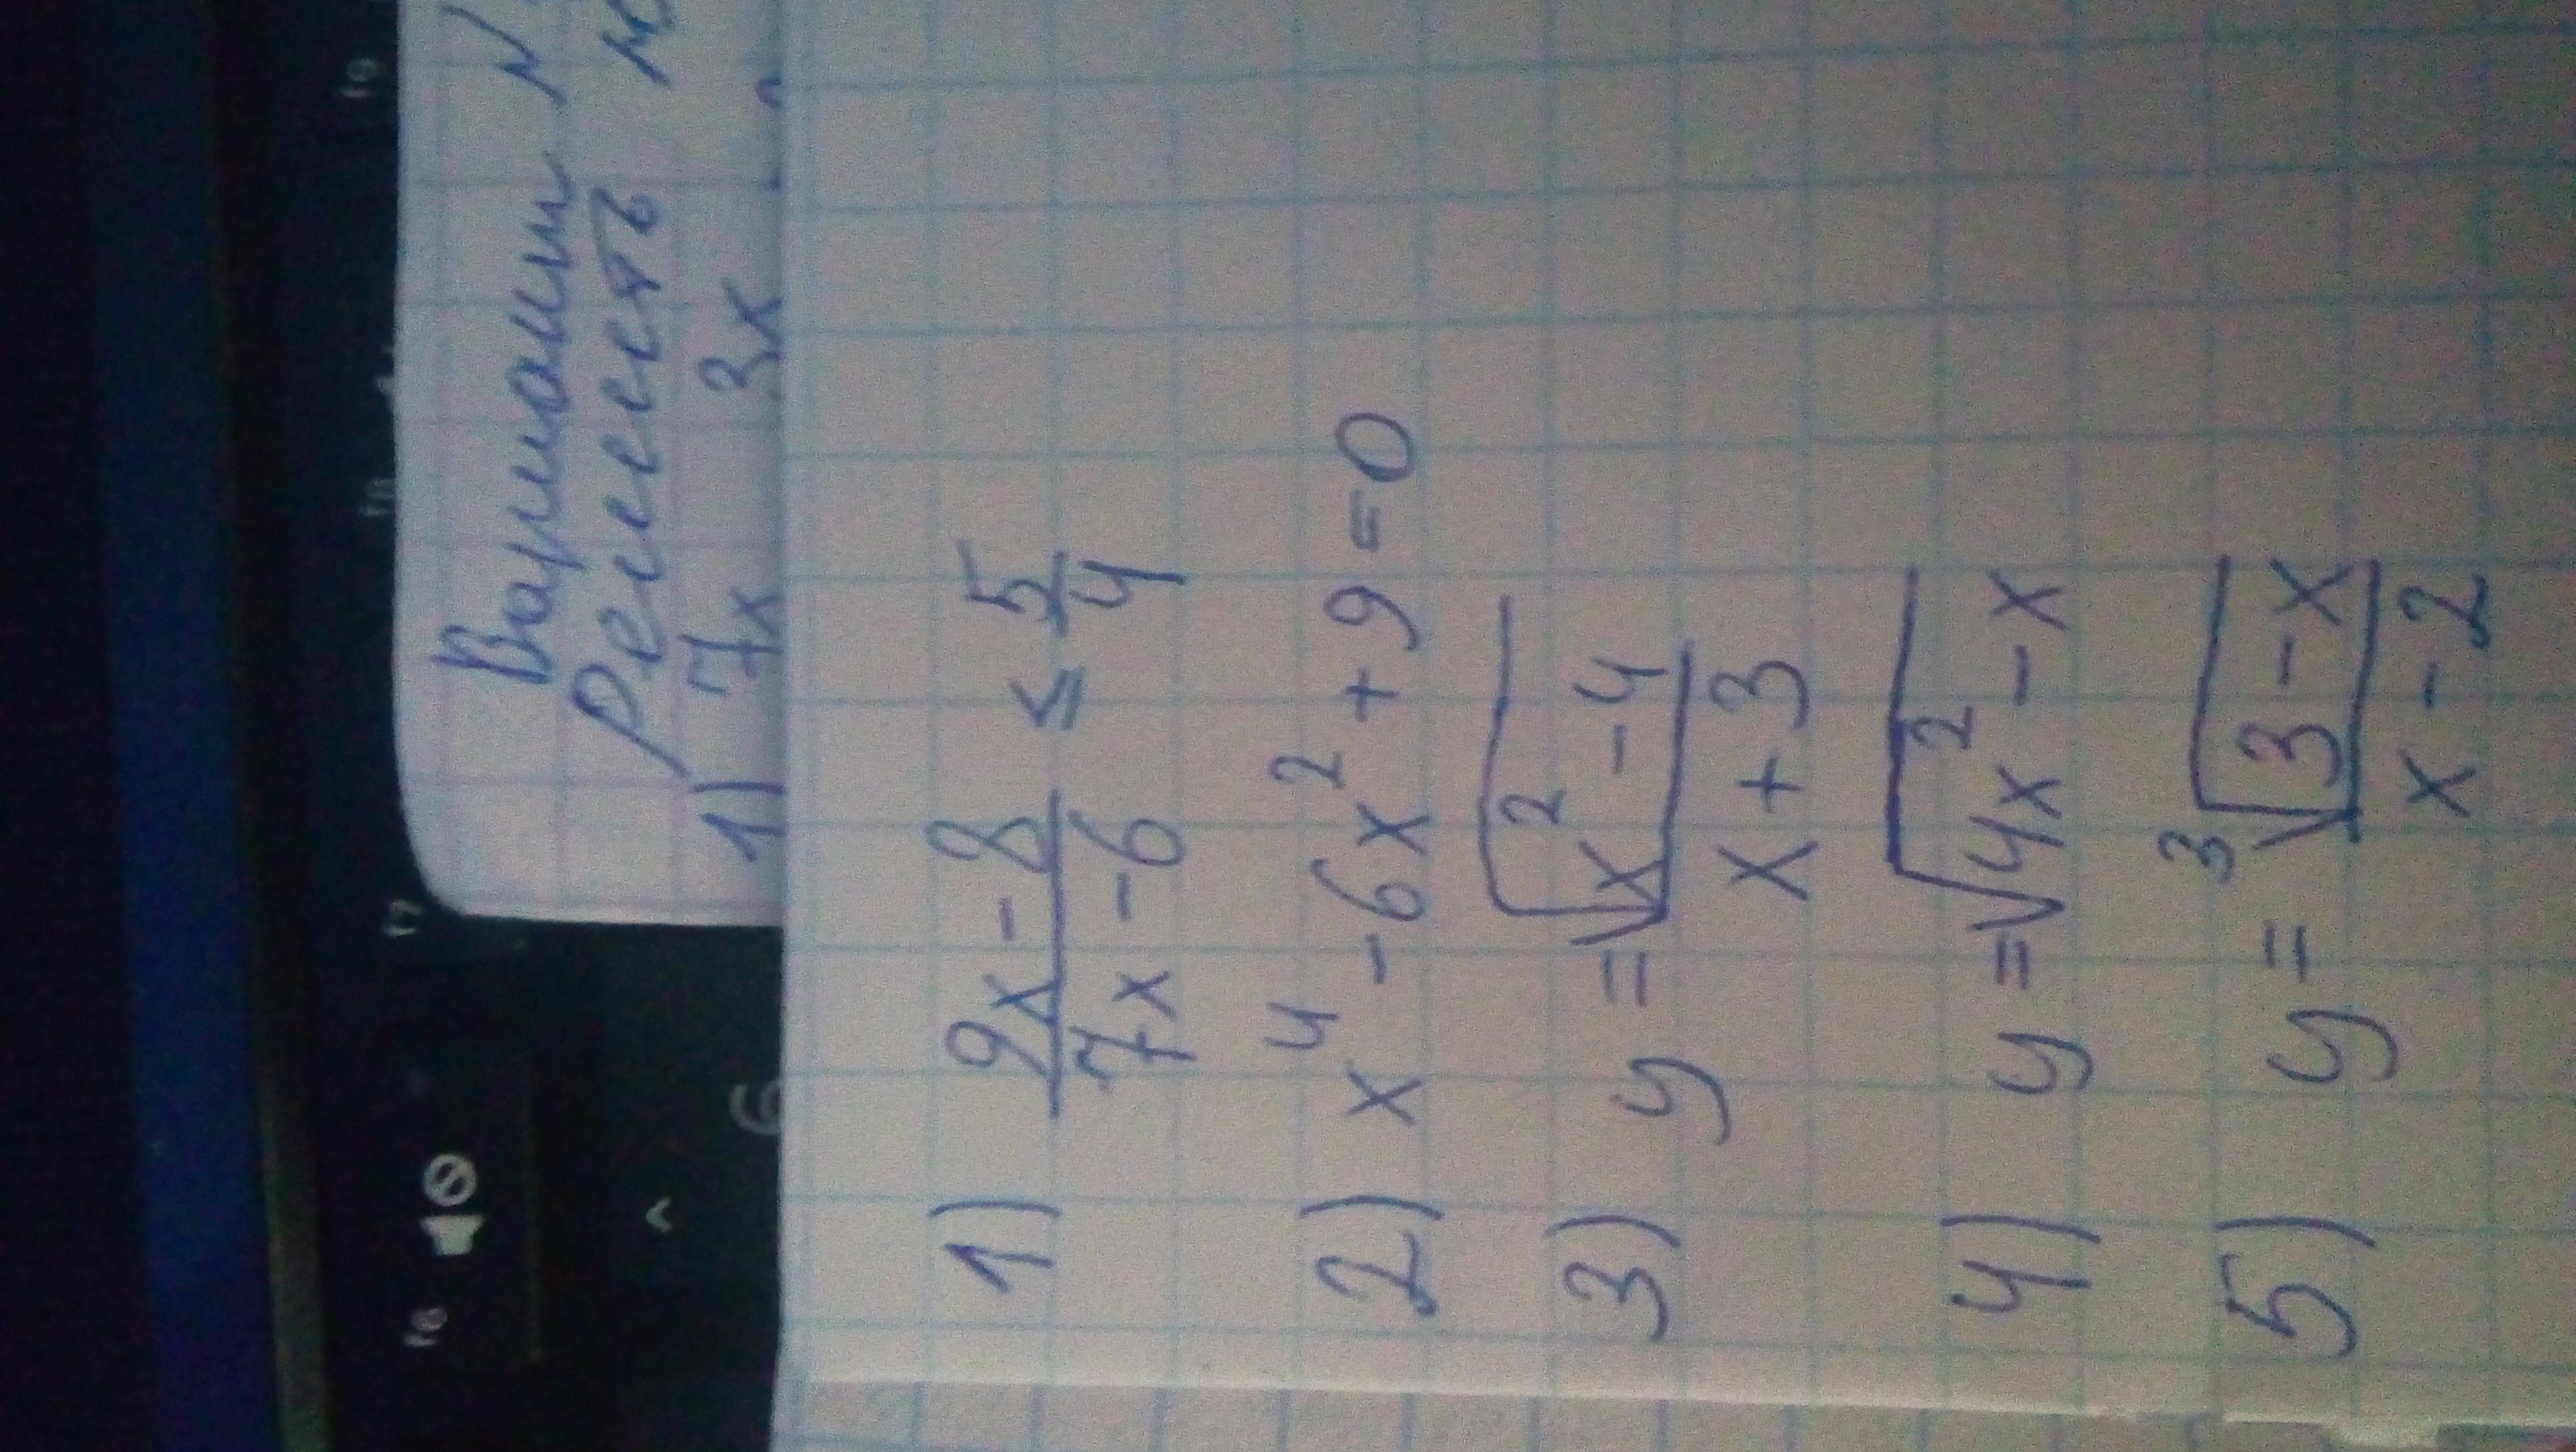 f6 f7 f8 f9
^ 6
Вариант N
Решить
1) 7x 3x
1) \frac{9x-8}{7x-6} ≤ \frac{5}{4}
2) x^4 - 6x^2 + 9 = 0
3) y = \frac{\sqrt{x^2-4}}{x+3}
4) y = \sqrt{4x^2-x}
5) y = \frac{\sqrt[3]{3-x}}{x-2}